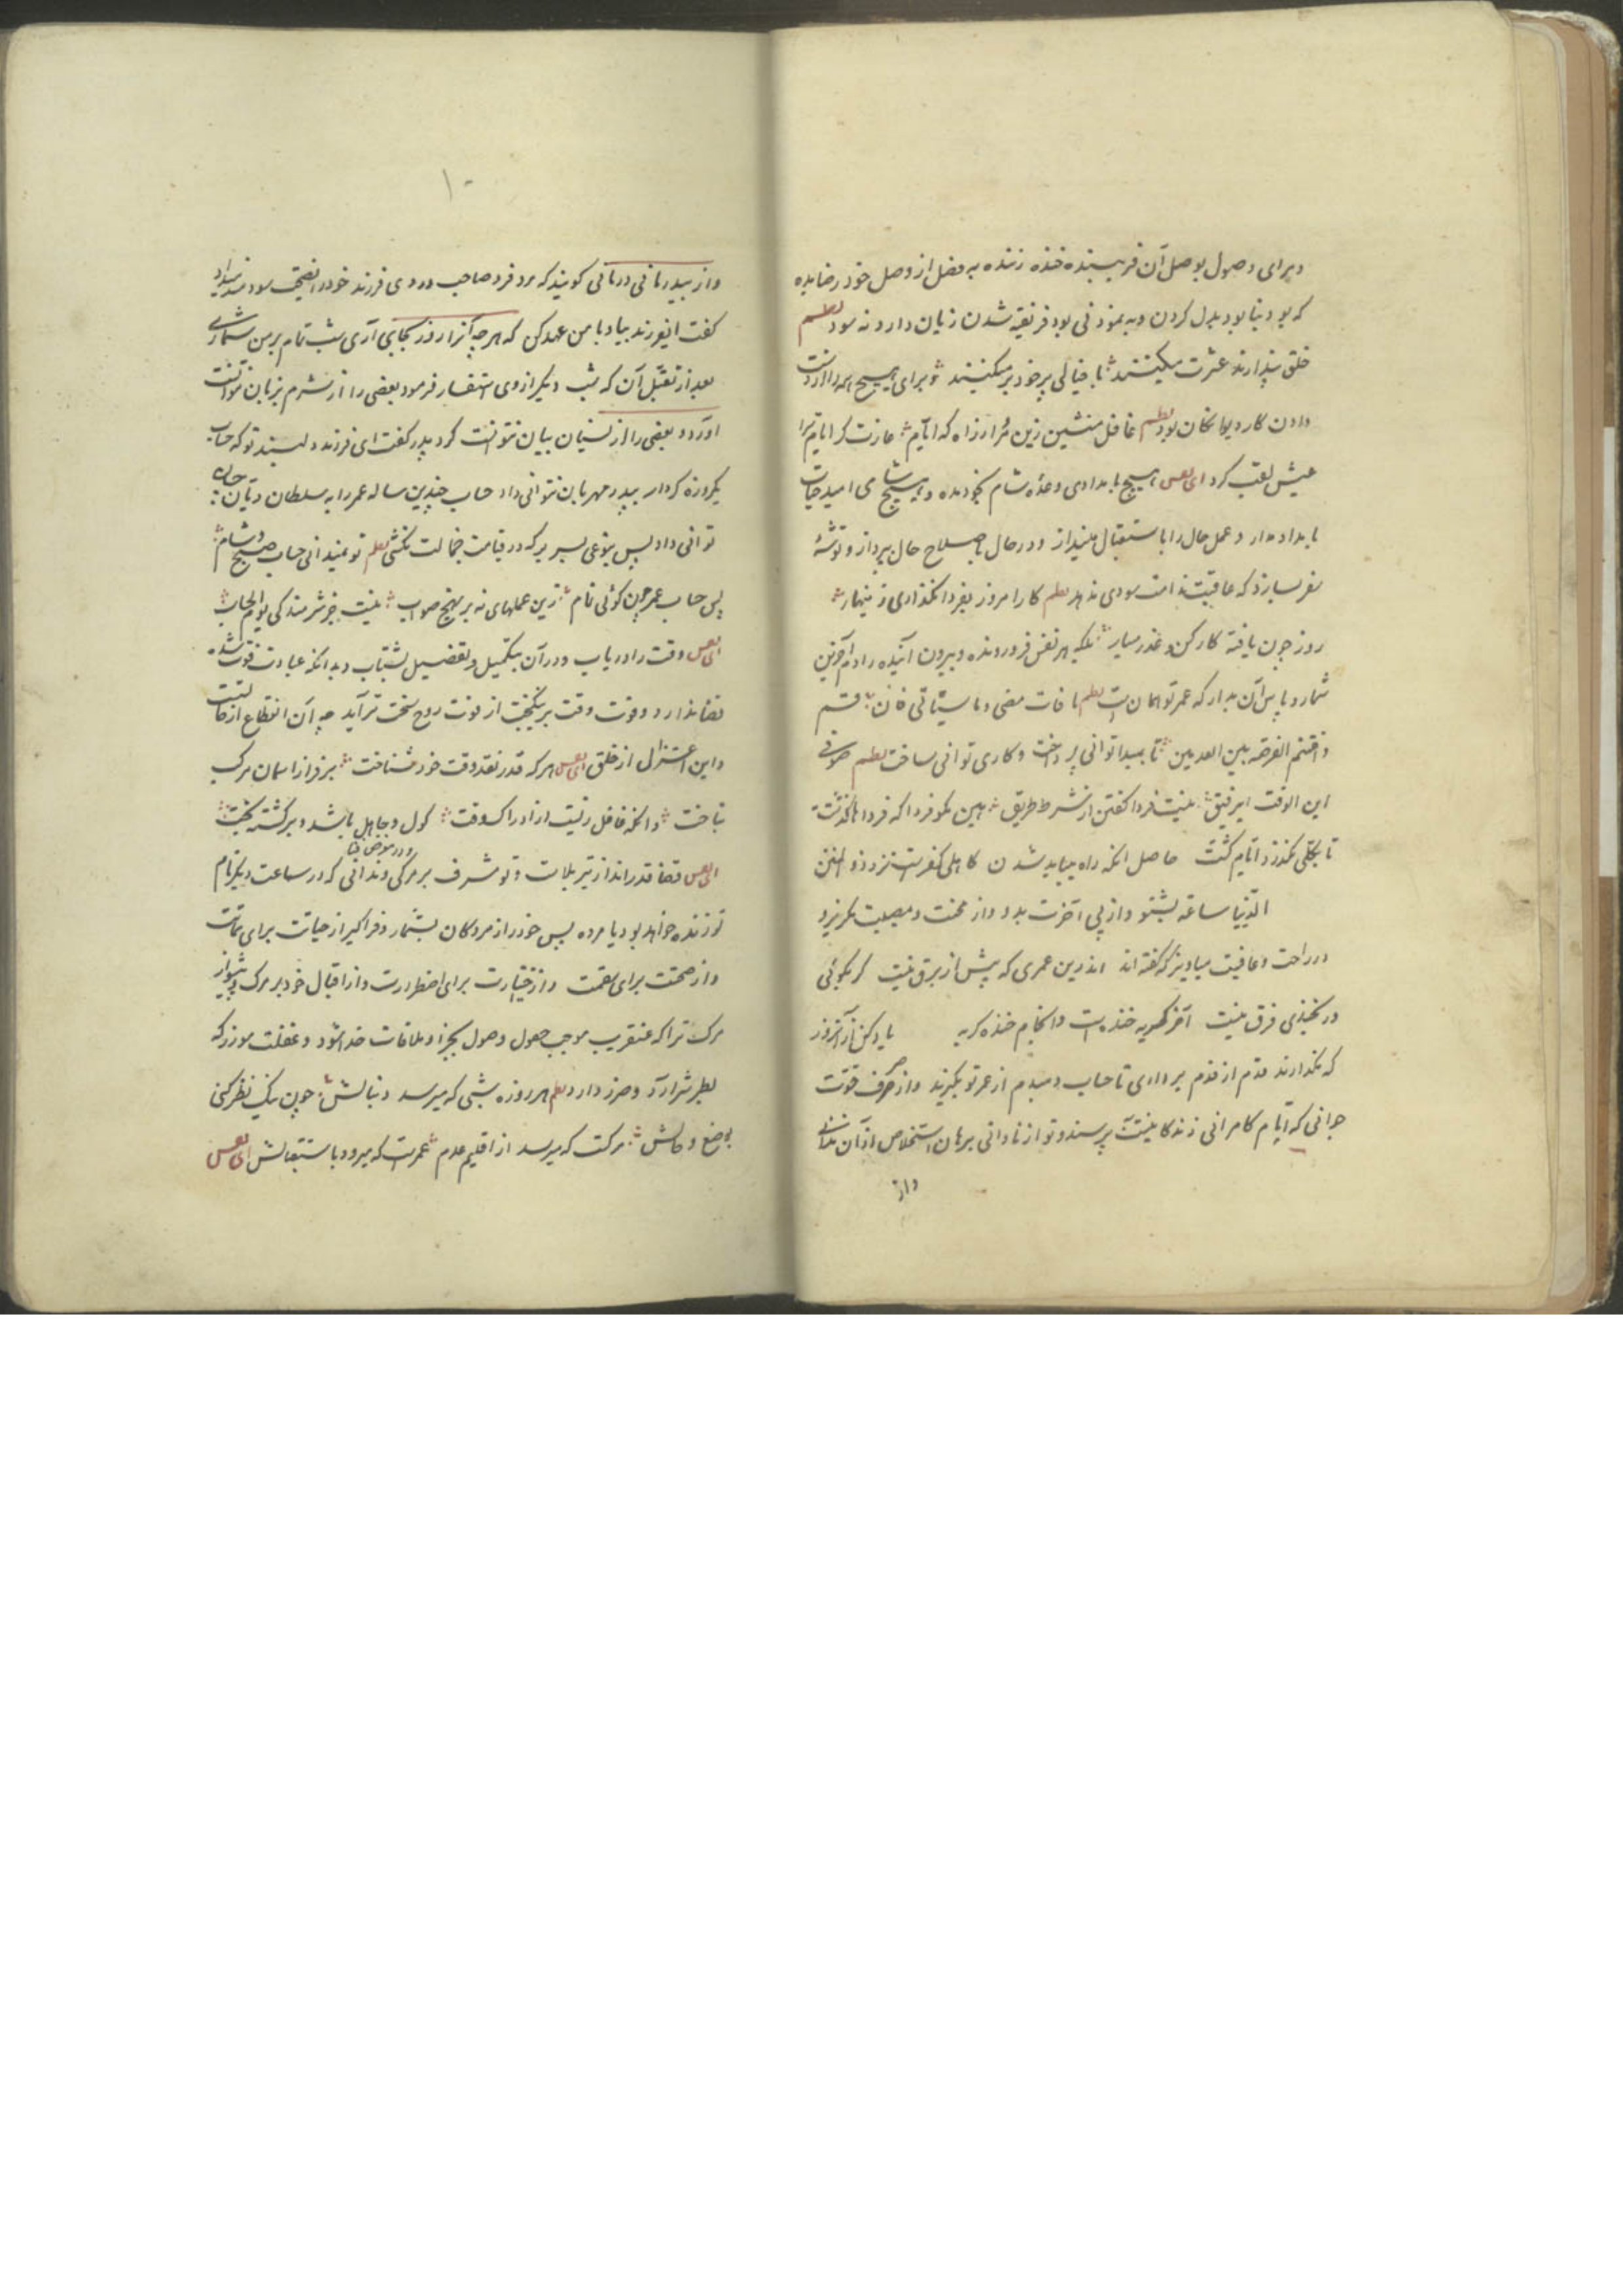 وبرای وصول بوصل آن فریبنده خنده زننده به فصل از وصل خود رضا بده
که بود بنابود بدل کردن وبه نمودنی بود فریفته شدن زیان دارد نه سود نظم
خلق پندارند عشرت میکنند با خیالی پر خود بر میکنند و برای هیچ همه را از دست
دادن کار دیوانگان بود نظم غافل منشین زین
عیش لقب کرد ای نفس هیچ بامدادی وعدهٔ شام بخود مده و هیچ شامی امید حیات
بامداد مدار و عمل حال را باستقبال مینداز و در حال باصلاح حال پرداز و توشهٔ
سفر بساز که عاقبت ندامت سودی ندهد نظم کار امروز بفردا نگذاری زینهار
روز چون یافتهٔ کار کن وعذر میار تکیه بر نفس فرورونده و بیرون آینده را دم آخرین
شمار و پاس آن بدار که عمر تو همان است نظم ما فات مضی وما سیأتیک فأین قم
واغتنم الفرصة بین العدمین تا
ابن الوقت ای رفیق نیست فردا گفتن از شرط طریق هین مگو فردا که فرداها گذشت
تا بکلی نگذرد ایام کشت حاصل آنکه راه بیاید شدن کاهلی کفر است نزد ذو المنن
الدنیا ساعة بشنو و از پی آخرت بدو و از محنت و مصیبت مگریز و
در راحت و عافیت میاویز که گفته‌اند اندرین عمری که بیش از برق نیست گر بگوئی
ور نخندی فرق نیست آخر هر گریه خنده است وانجام خنده گریه یاد کن از آنروز
که نگذارند قدم از قدم برداری تا حساب دمبدم از عمر تو بگیرند و از صرف قوت
جوانی که ایام کامرانی زندگانیست پرسند و تو از نادانی برهان استخلاص از آن ندانی
واز
۱۰
واز پدر مانی در مانی گویند که مردی فرد صاحب دردی فرزند خود را نصیحت سودمند میداد
گفت ای فرزند بیا و با من عهد کن که هر چه آنرا روز بجای آری شب تمام بر من شماری
بعد از تقبل آن که شب دیگر از وی استفسار فرمود بعضی را از شرم بزبان نتوانست
آورد و بعضی را از نسیان بیان نتوانست کرد پدر گفت ای فرزند دلبند تو که حساب
یکروزه کردار بپدر مهربان نتوانی داد حساب چندین ساله عمر را به سلطان دیان چسان
توانی داد پس بنوعی بسر بر که در قیامت خجالت نکشی نظم تو نمیدانی حساب صبح و شام
پس حساب عمر چون گوئی تمام زین عملهای نه بر نهج صواب نیست جز شرمندگی یوم الحساب
ای نفس وقت را دریاب و در آن بتکمیل و تفضیل بشتاب وبدانکه عبادت فوت شده
قضا ندارد و فوت وقت بر نیکبخت از فوت روح سخت تر آید چه آن انقطاع از حق است
واین اعتزال از خلق ای نفس هر که قدر نقد وقت خود شناخت بر فراز آسمان مرکب
بتاخت وانکه غافل زیست از ادراک وقت گول و جاهل باشد و برگشته بخت
ای نفس قضا قدرانداز تیر بلاست و تو مشرف بر مرگی و در معرض فنا و ندانی که در ساعت دیگر نام
تو زنده خواهد بود یا مرده پس خود را از مردگان بشمار و فراگیر از حیاتت برای مماتت
واز صحتت برای سقمت واز اختیارت برای اضطرارت واز اقبال خود بر مرگ
مرگ ترا که عنقریب موجب حصول وصول بجزا و ملاقات خدا شود و غفلت مورز که
ضرر دارد نظم هر روزه شبی که میرسد دنبالش چون نیک نظر کنی
بوضع وحالش مرگست که میرسد از اقلیم عدم عمرت که میرود باستقبالش ای نفس